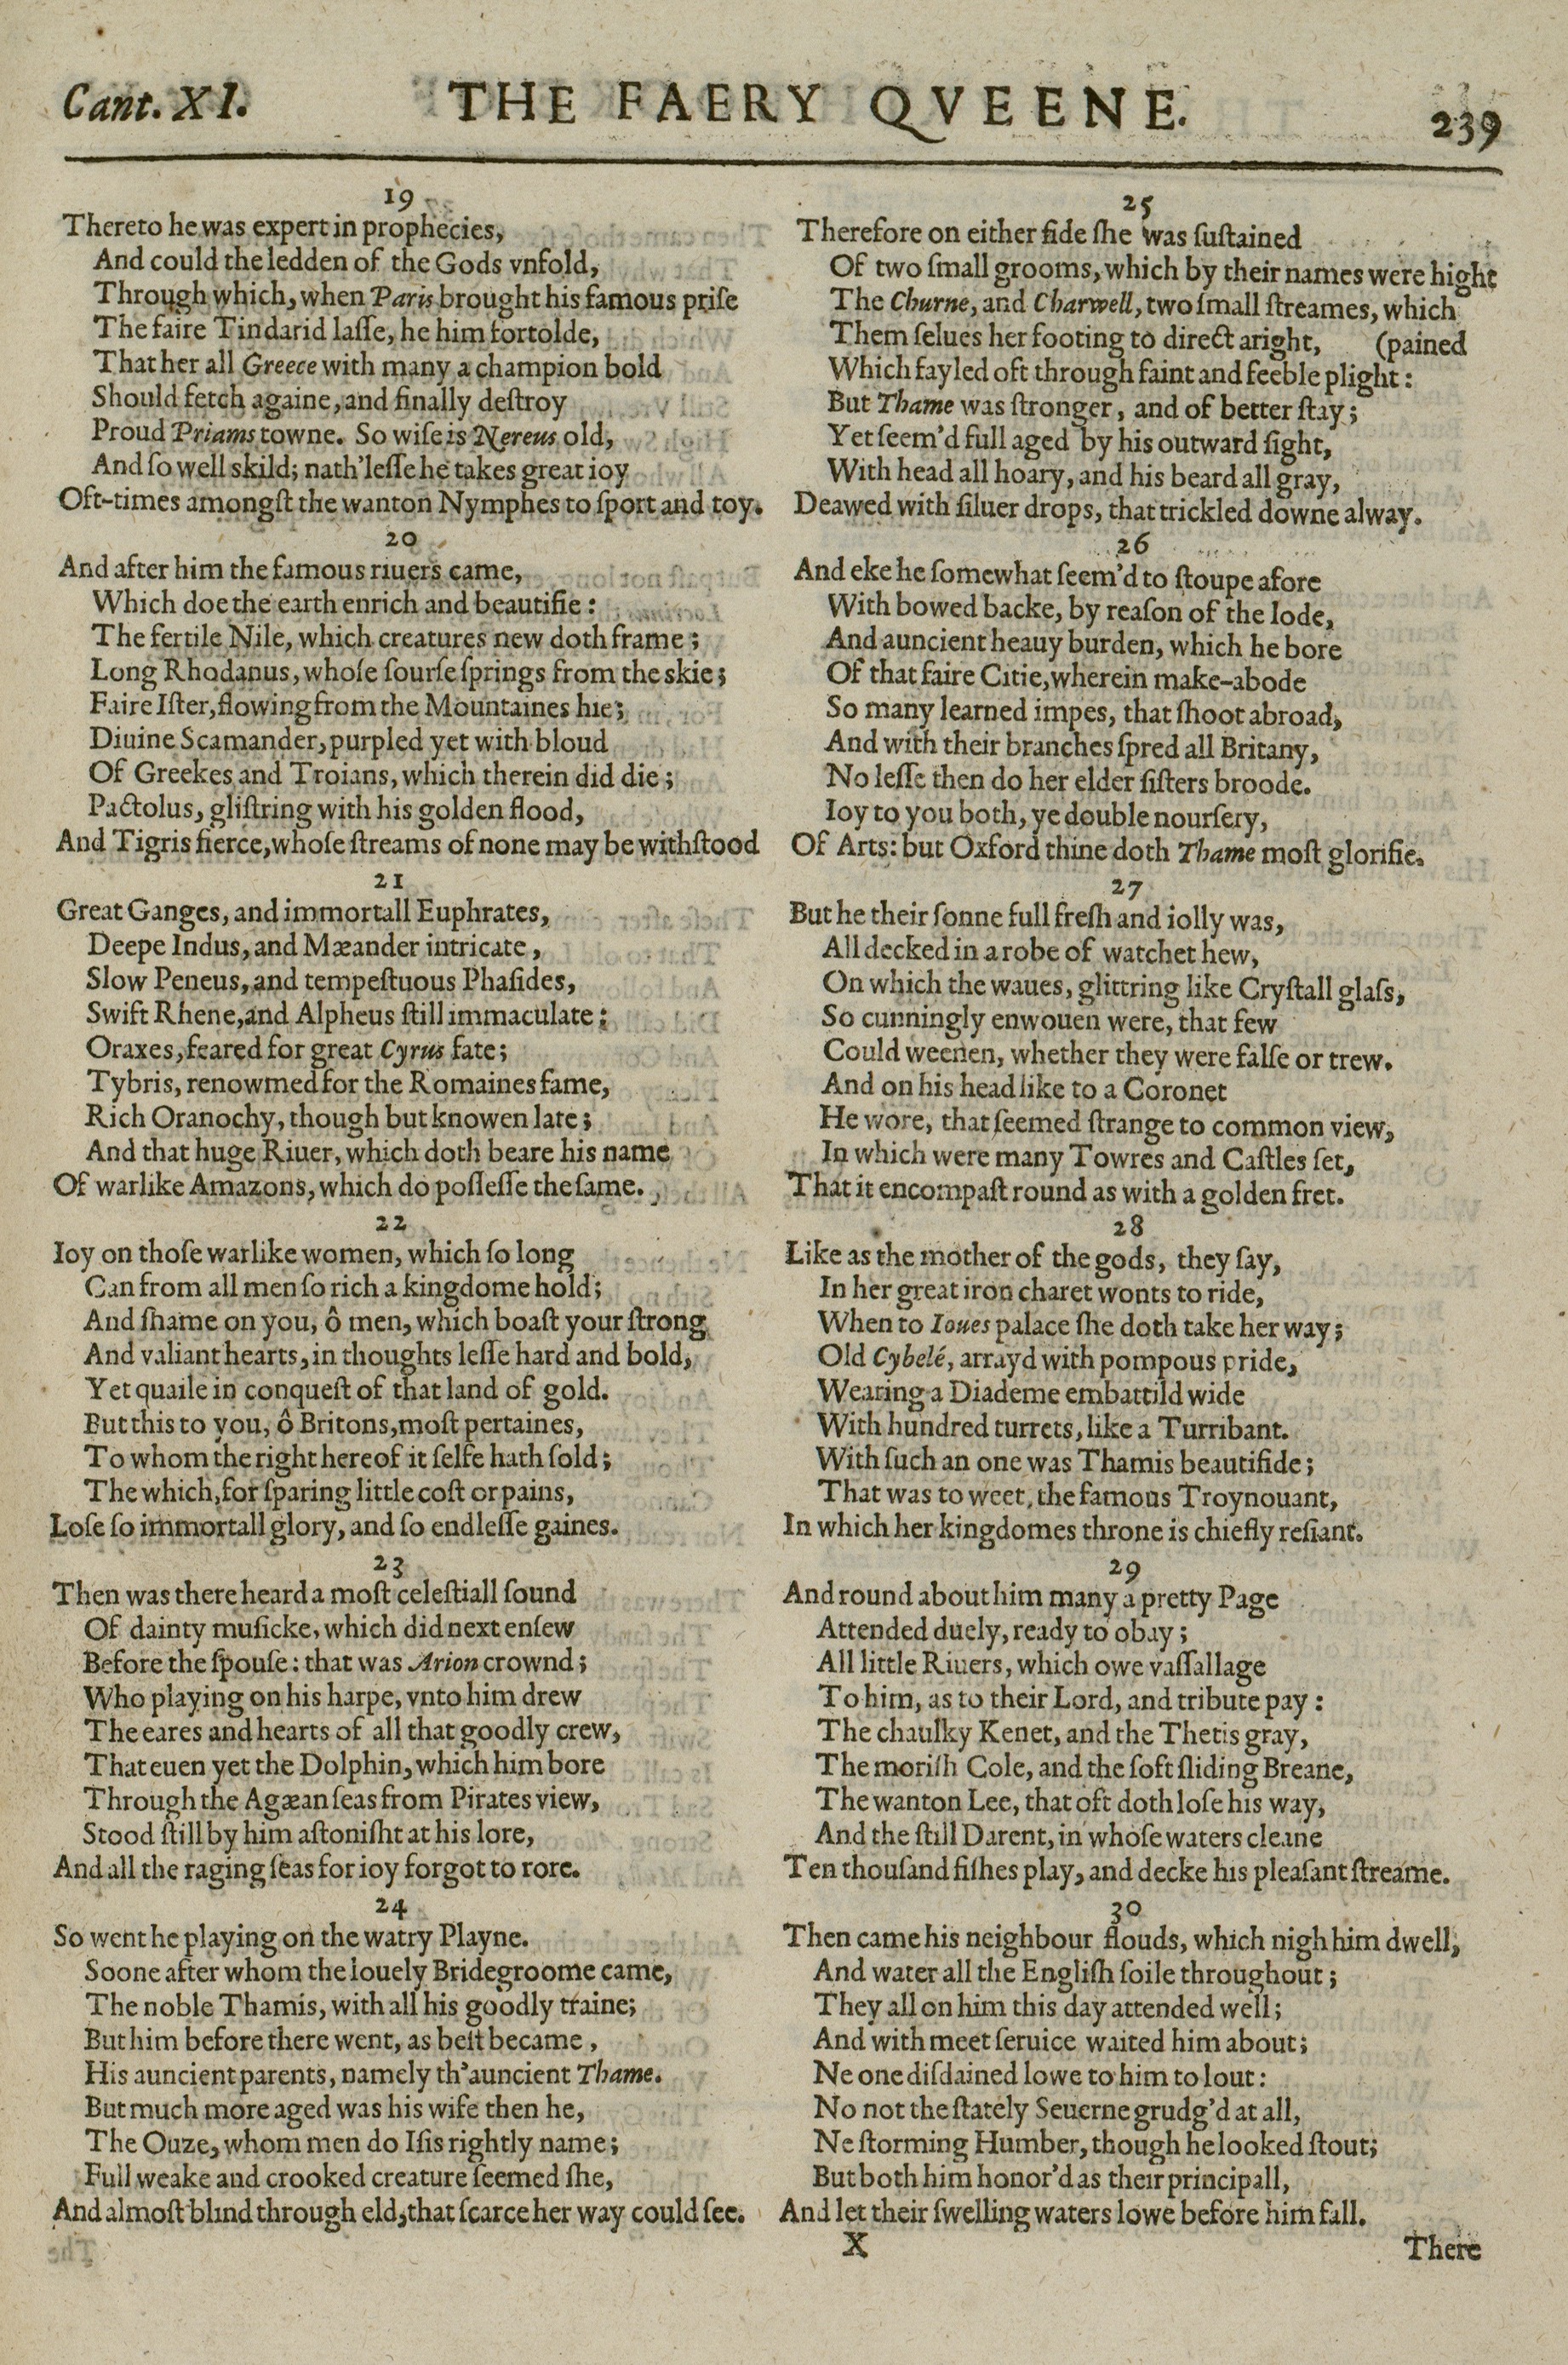 Cant. XI.
THE FAERY QVEENE.
239
19
Thereto he was expert in prophecies,
And could the ledden of the Gods vnfold,
Through which, when Paris brought his famous priſe
The faire Tindarid laſſe, he him fortolde,
That her all Greece with many a champion bold
Should fetch againe, and finally deſtroy
Proud Priams towne. So wiſe is Nereus old,
And ſo well skild; nath'leſſe he takes great ioy
Oft-times amongſt the wanton Nymphes to ſport and toy.
20
And after him the famous riuers came,
Which doe the earth enrich and beautifie:
The fertile Nile, which creatures new doth frame;
Long Rhodanus, whoſe ſourſe ſprings from the skie;
Faire Iſter, flowing from the Mountaines hie;
Diuine Scamander, purpled yet with bloud
Of Greekes and Troians, which therein did die;
Pactolus, gliſtring with his golden flood,
And Tigris fierce, whoſe ſtreams of none may be withſtood
21
Great Ganges, and immortall Euphrates,
Deepe Indus, and Mæander intricate,
Slow Peneus, and tempeſtuous Phaſides,
Swift Rhene, and Alpheus ſtill immaculate:
Oraxes, feared for great Cyrus fate;
Tybris, renowmed for the Romaines fame,
Rich Oranochy, though but knowen late;
And that huge Riuer, which doth beare his name
Of warlike Amazons, which do poſſeſſe the ſame.
22
Ioy on thoſe warlike women, which ſo long
Can from all men ſo rich a kingdome hold;
And ſhame on you, ô men, which boaſt your ſtrong
And valiant hearts, in thoughts leſſe hard and bold,
Yet quaile in conqueſt of that land of gold.
But this to you, ô Britons, moſt pertaines,
To whom the right hereof it ſelfe hath ſold;
The which, for ſparing little coſt or pains,
Loſe ſo immortall glory, and ſo endleſſe gaines.
23
Then was there heard a moſt celeſtiall ſound
Of dainty muſicke, which did next enſew
Before the ſpouſe: that was Arion crownd;
Who playing on his harpe, vnto him drew
The eares and hearts of all that goodly crew,
That euen yet the Dolphin, which him bore
Through the Agæan ſeas from Pirates view,
Stood ſtill by him aſtoniſht at his lore,
And all the raging ſeas for ioy forgot to rore.
24
So went he playing on the watry Playne.
Soone after whom the louely Bridegroome came,
The noble Thamis, with all his goodly traine;
But him before there went, as beſt became,
His auncient parents, namely th'auncient Thame.
But much more aged was his wife then he,
The Ouze, whom men do Iſis rightly name;
Full weake and crooked creature ſeemed ſhe,
And almoſt blind through eld, that ſcarce her way could ſee.
25
Therefore on either ſide ſhe was ſuſtained
Of two ſmall grooms, which by their names were hight
The Churne, and Charwell, two ſmall ſtreames, which
Them ſelues her footing to direct aright, (pained
Which fayled oft through faint and feeble plight:
But Thame was ſtronger, and of better ſtay;
Yet ſeem'd full aged by his outward ſight,
With head all hoary, and his beard all gray,
Deawed with ſiluer drops, that trickled downe alway.
26
And eke he ſomewhat ſeem'd to ſtoupe afore
With bowed backe, by reaſon of the lode,
And auncient heauy burden, which he bore
Of that faire Citie, wherein make-abode
So many learned impes, that ſhoot abroad,
And with their branches ſpred all Britany,
No leſſe then do her elder ſiſters broode.
Ioy to you both, ye double nourſery,
Of Arts: but Oxford thine doth Thame moſt glorifie.
27
But he their ſonne full freſh and iolly was,
All decked in a robe of watchet hew,
On which the waues, glittring like Cryſtall glaſs,
So cunningly enwouen were, that few
Could weenen, whether they were falſe or trew.
And on his head like to a Coronet
He wore, that ſeemed ſtrange to common view,
In which were many Towres and Caſtles ſet,
That it encompaſt round as with a golden fret.
28
Like as the mother of the gods, they ſay,
In her great iron charet wonts to ride,
When to Ioues palace ſhe doth take her way;
Old Cybelé, arrayd with pompous pride,
Wearing a Diademe embattild wide
With hundred turrets, like a Turribant.
With ſuch an one was Thamis beautifide;
That was to weet, the famous Troynouant,
In which her kingdomes throne is chiefly reſiant.
29
And round about him many a pretty Page
Attended duely, ready to obay;
All little Riuers, which owe vaſſallage
To him, as to their Lord, and tribute pay:
The chaulky Kenet, and the Thetis gray,
The moriſh Cole, and the ſoft ſliding Breane,
The wanton Lee, that oft doth loſe his way,
And the ſtill Darent, in whoſe waters cleane
Ten thouſand fiſhes play, and decke his pleaſant ſtreame.
30
Then came his neighbour flouds, which nigh him dwell,
And water all the Engliſh ſoile throughout;
They all on him this day attended well;
And with meet ſeruice waited him about;
Ne one diſdained lowe to him to lout:
No not the ſtately Seuerne grudg'd at all,
Ne ſtorming Humber, though he looked ſtout;
But both him honor'd as their principall,
And let their ſwelling waters lowe before him fall.
X
There